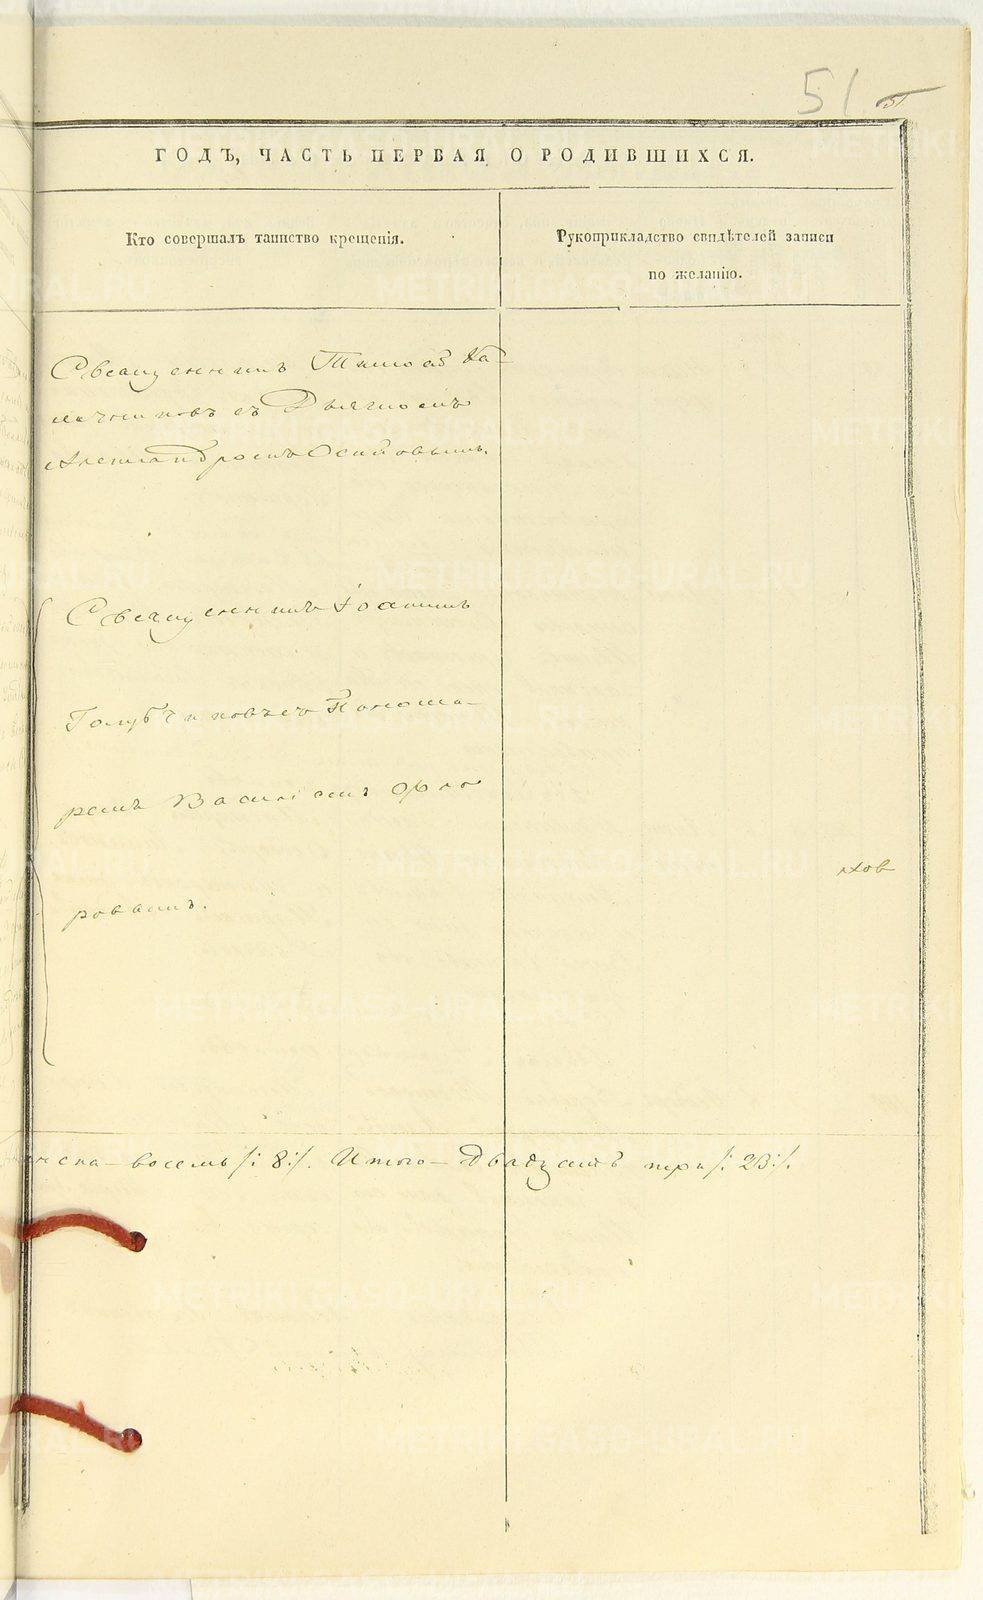 51 51
ГОДЪ, ЧАСТЬ ПЕРВАЯ О РОДИВШИХСЯ.
Кто совершалъ таинство крещенія.
Рукоприкладство свидѣтелей записи
по желанію.
Священникъ Тимоѳей Ка-
лачниковъ съ Дьячкомъ
Александромъ Осиповымъ.
Священникъ Іоаннъ
Голубчиковъ съ Понома-
ремъ Василіемъ Флоровымъ.
женска - восемь /: 8 :/. Итого - Двадцать три /: 23 :/.
METRIKI.GASO-URAL.RU